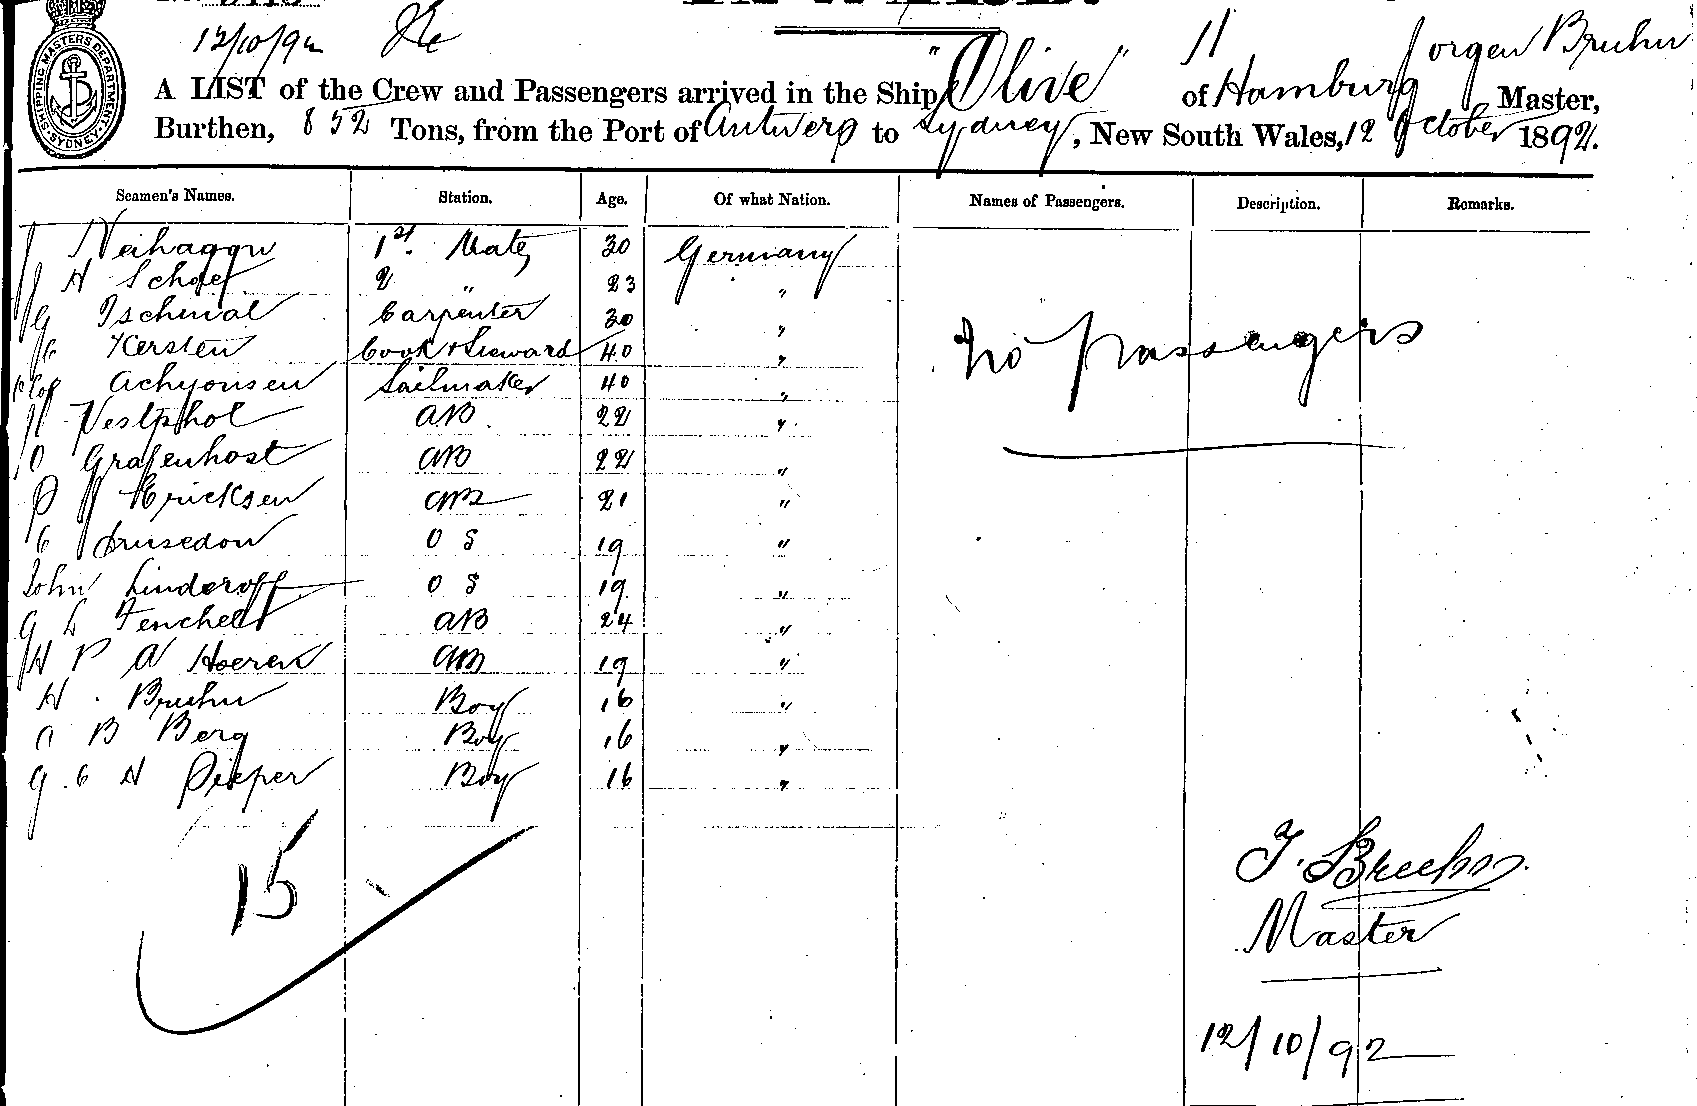 12/10/92
SHIPPING MASTERS DEPARTMENT SYDNEY
A LIST of the Crew and Passengers arrived in the Ship "Olive" of Hamburg Jorgen Bruhn Master,
Burthen, 852 Tons, from the Port of Antwerp to Sydney, New South Wales, 12 October 1892.
Seamen's Names. Station. Age. Of what Nation. Names of Passengers. Description. Remarks.
J 1st. Mate 30 Germany
J H Schoef 2 " 23 "
G Ischmal Carpenter 30 "
Kersten Cook & Steward 40 "
Sailmaker 40 "
H Vestphol AB 22 "
O Grafenhost AB 22 "
P J Ericksen AB 21 "
C O S 19 "
John Linderoff O S 19 "
G L Fenchell AB 24 "
H P A AB 19 "
H. Bruhn Boy 16 "
A B Berg Boy 16 "
G. C H Pieper Boy 16 "
No passengers
15
J. Bruhn
Master
12/10/92